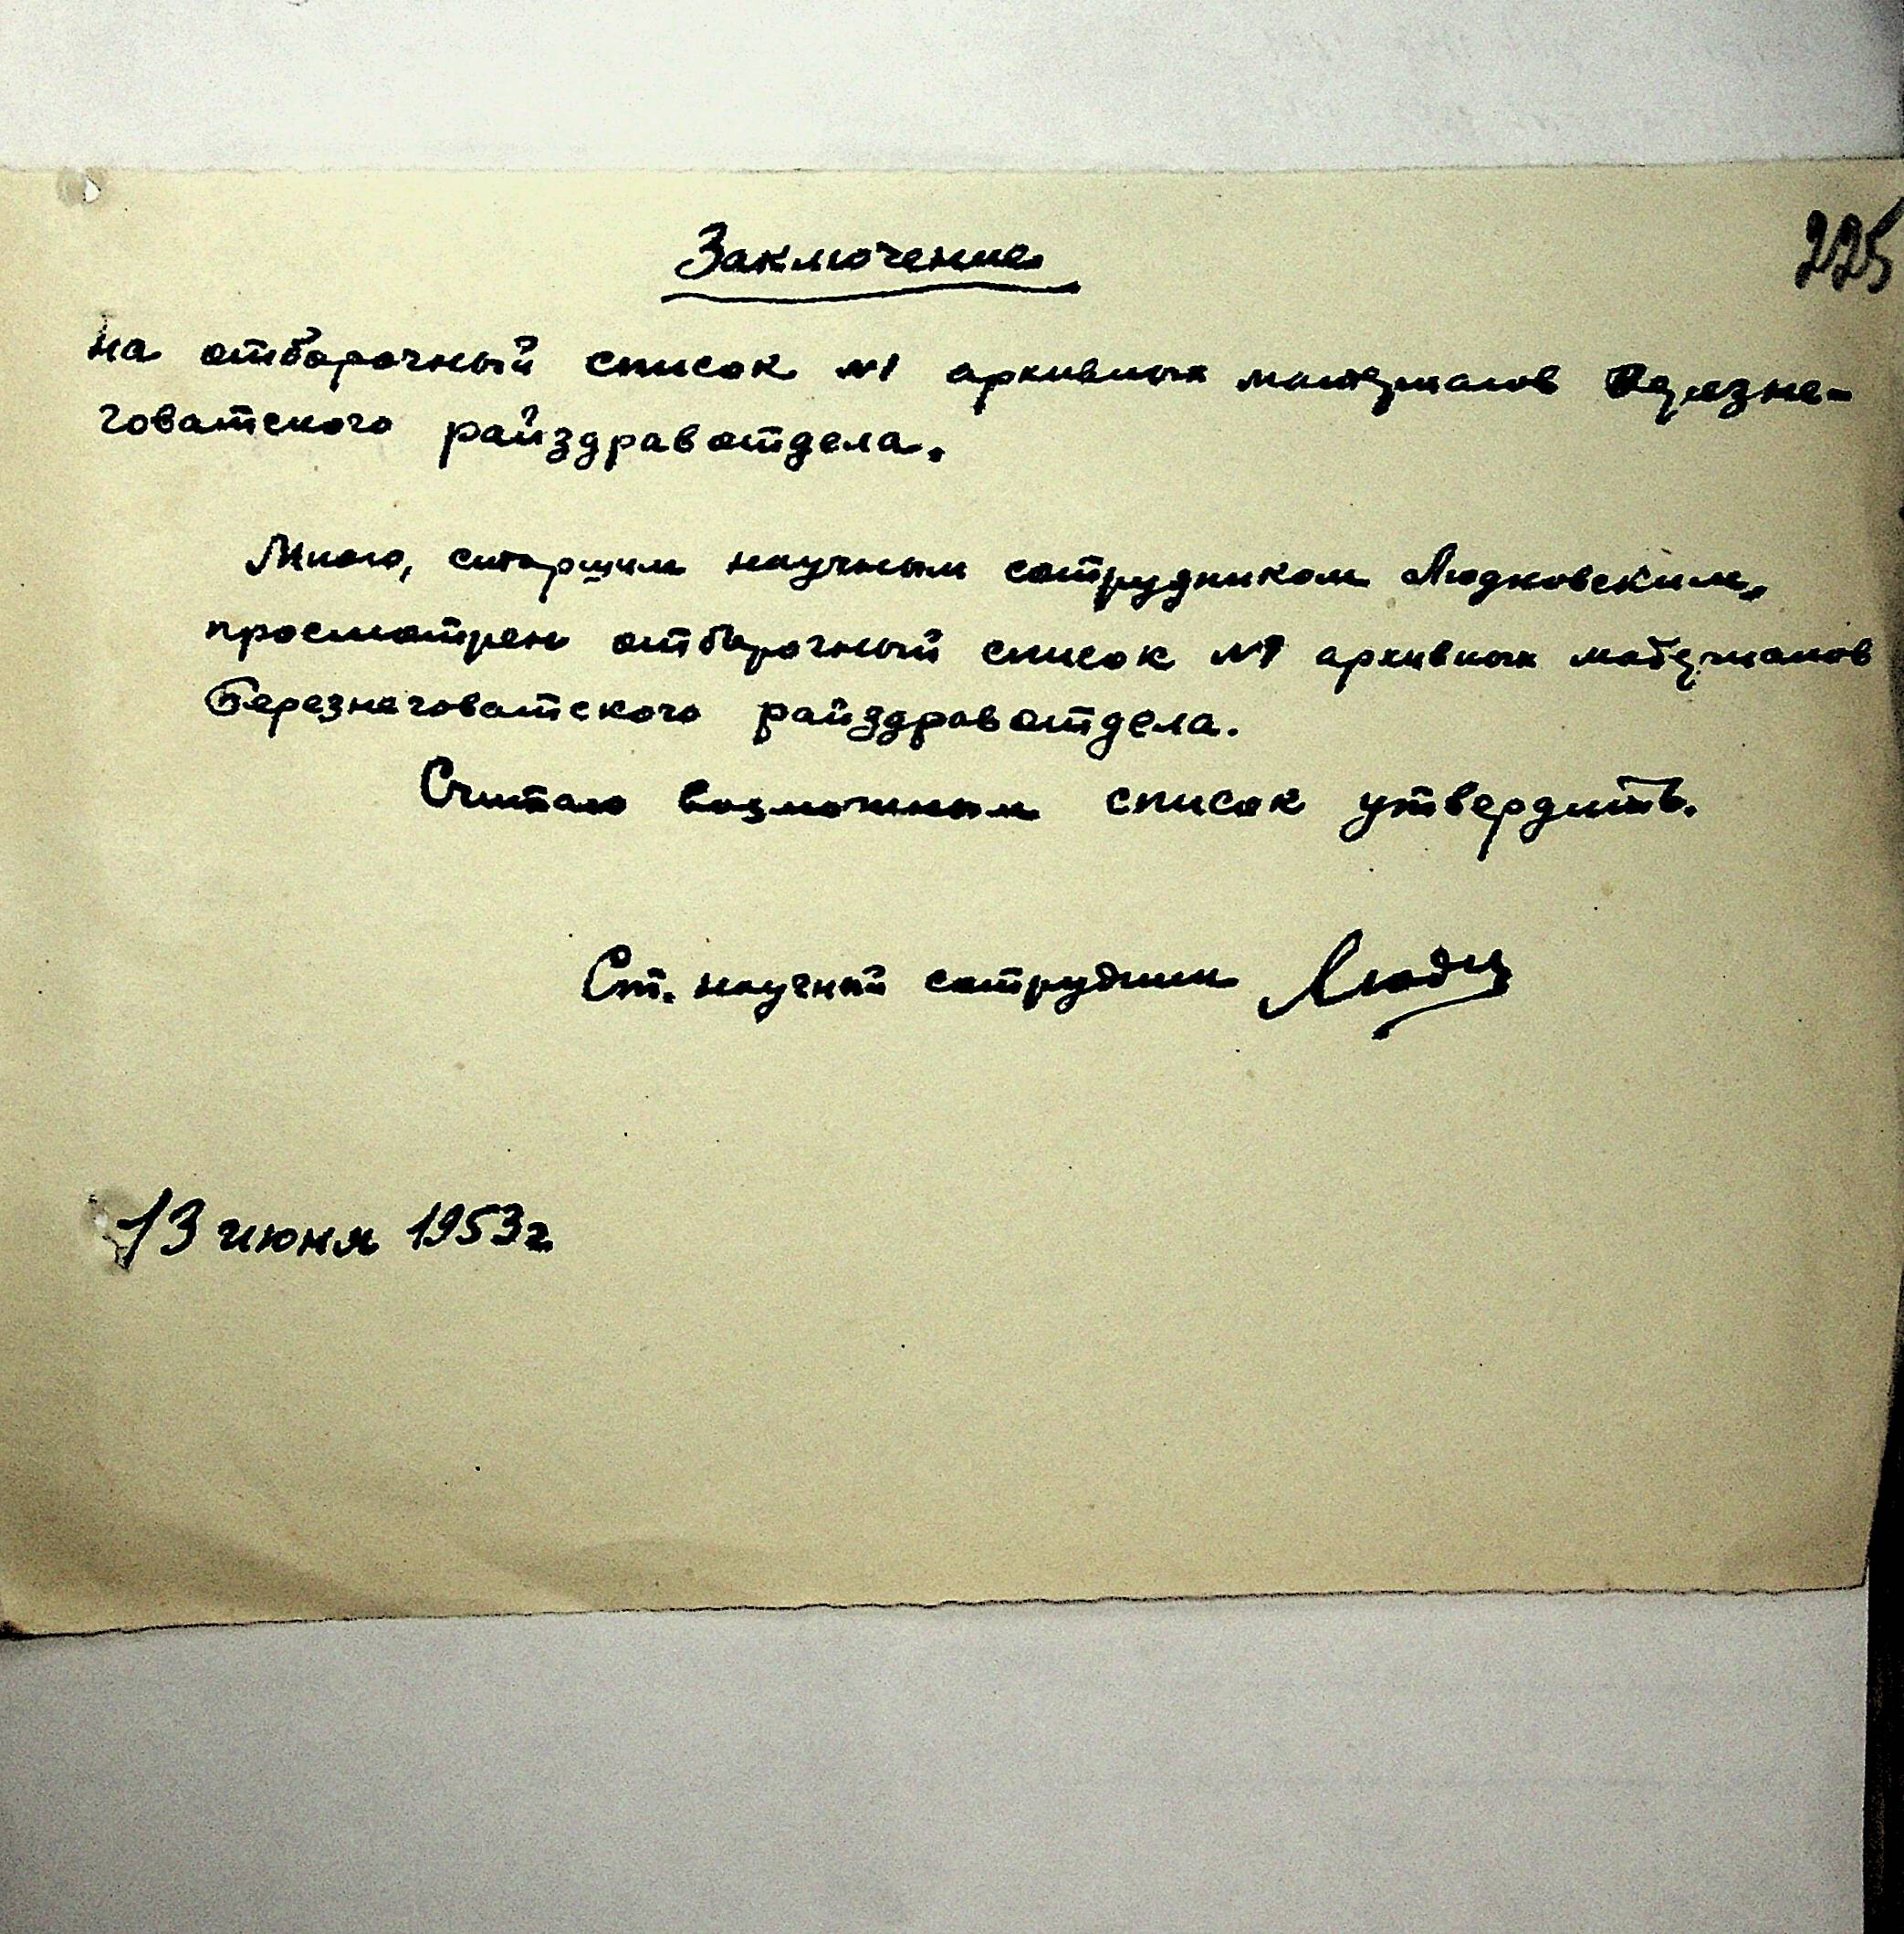 225
Заключение
на отборочный список №1 архивных материалов Березне-
говатского райздравотдела.
Мною, старшим научным сотрудником Людковским,
просмотрен отборочный список №1 архивных материалов
Березнеговатского райздравотдела.
Считаю возможным список утвердить.
Ст. научный сотрудник
13 июня 1953г